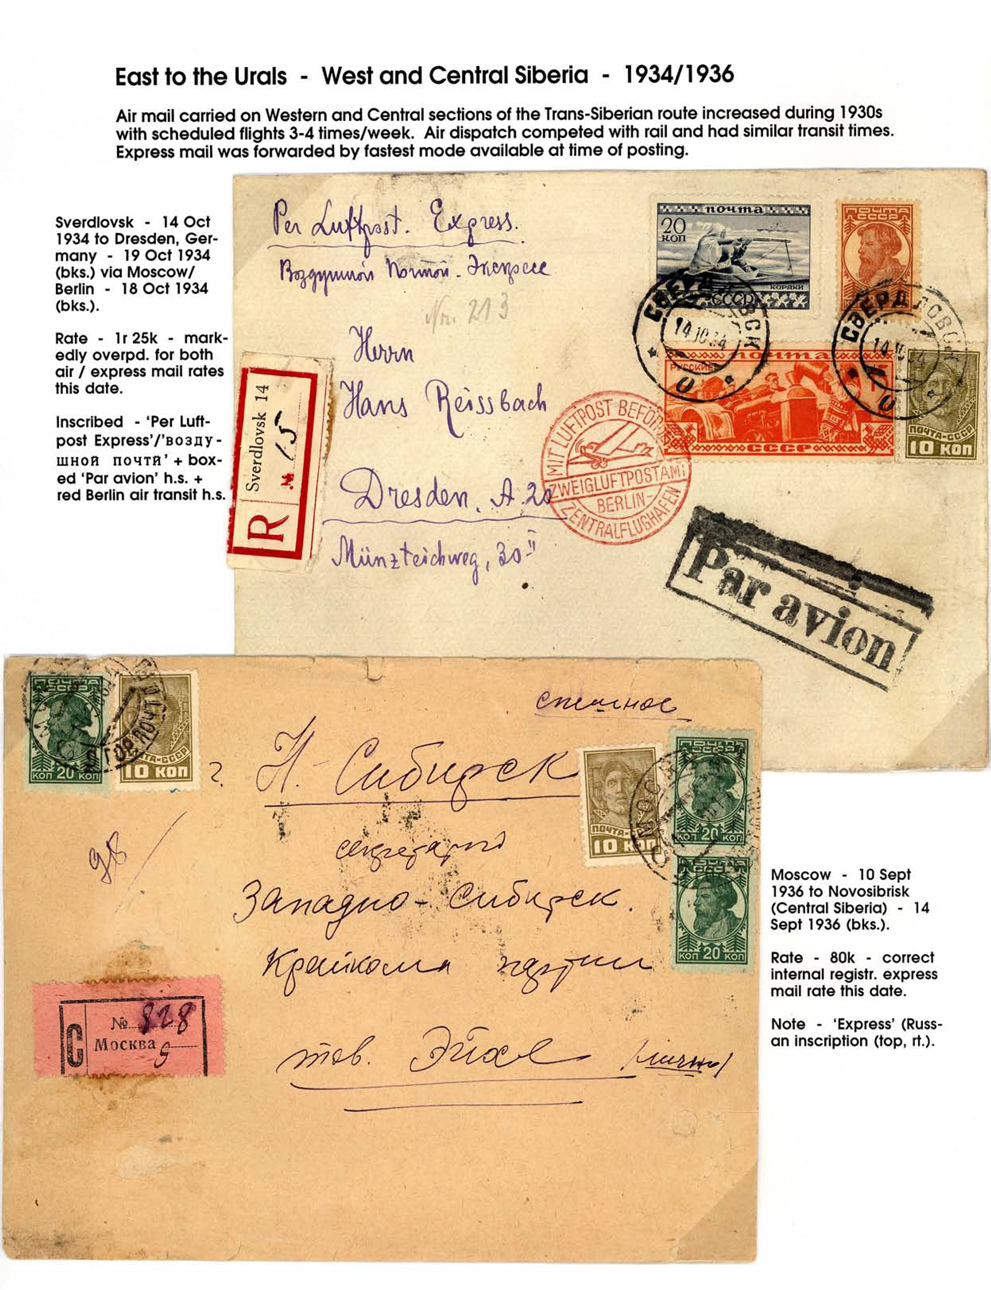 East to the Urals - West and Central Siberia - 1934/1936
Air mail carried on Western and Central sections of the Trans-Siberian route increased during 1930s
with scheduled flights 3-4 times/week. Air dispatch competed with rail and had similar transit times.
Express mail was forwarded by fastest mode available at time of posting.
Sverdlovsk - 14 Oct
1934 to Dresden, Ger-
many - 19 Oct 1934
(bks.) via Moscow/
Berlin - 18 Oct 1934
(bks.).
Rate - 1r 25k - mark-
edly overpd. for both
air / express mail rates
this date.
Inscribed - 'Per Luft-
post Express'/'возду-
шной почти' + box-
ed 'Par avion' h.s. +
red Berlin air transit h.s.
Per Luftpost. Express.
Воздушной Почтой - Экспресс
No. 213
Herrn
Hans Reissbach
Dresden, A 20
Münzteichweg, 30 II
R
Sverdlovsk 14
№ 15
почта
20
КОП
КОРЯКИ
СССР
ПОЧТА
СССР
СВЕРДЛОВСК
14 10 34
СВЕРДЛОВСК
14 10 34
почта
РУССКИЕ
СССР
ПОЧТА-СССР
10 КОП
MIT LUFTPOST BEFÖR
ZWEIGLUFTPOSTAMT
BERLIN-
ZENTRALFLUGHAFEN
Par avion
ПОЧТА
СССР
КОП 20 КОП
ПОЧТА-СССР
10 КОП
спешное
г. Н-Сибирск
секретарю
Западно-Сибирск.
Крайкома партии
тов. Эйхе (лично)
98
ПОЧТА-СССР
10 КОП
ПОЧТА
СССР
20 КОП
ПОЧТА
СССР
КОП 20 КОП
С
№ 828
Москва 9
Moscow - 10 Sept
1936 to Novosibrisk
(Central Siberia) - 14
Sept 1936 (bks.).
Rate - 80k - correct
internal registr. express
mail rate this date.
Note - 'Express' (Russ-
an inscription (top, rt.).